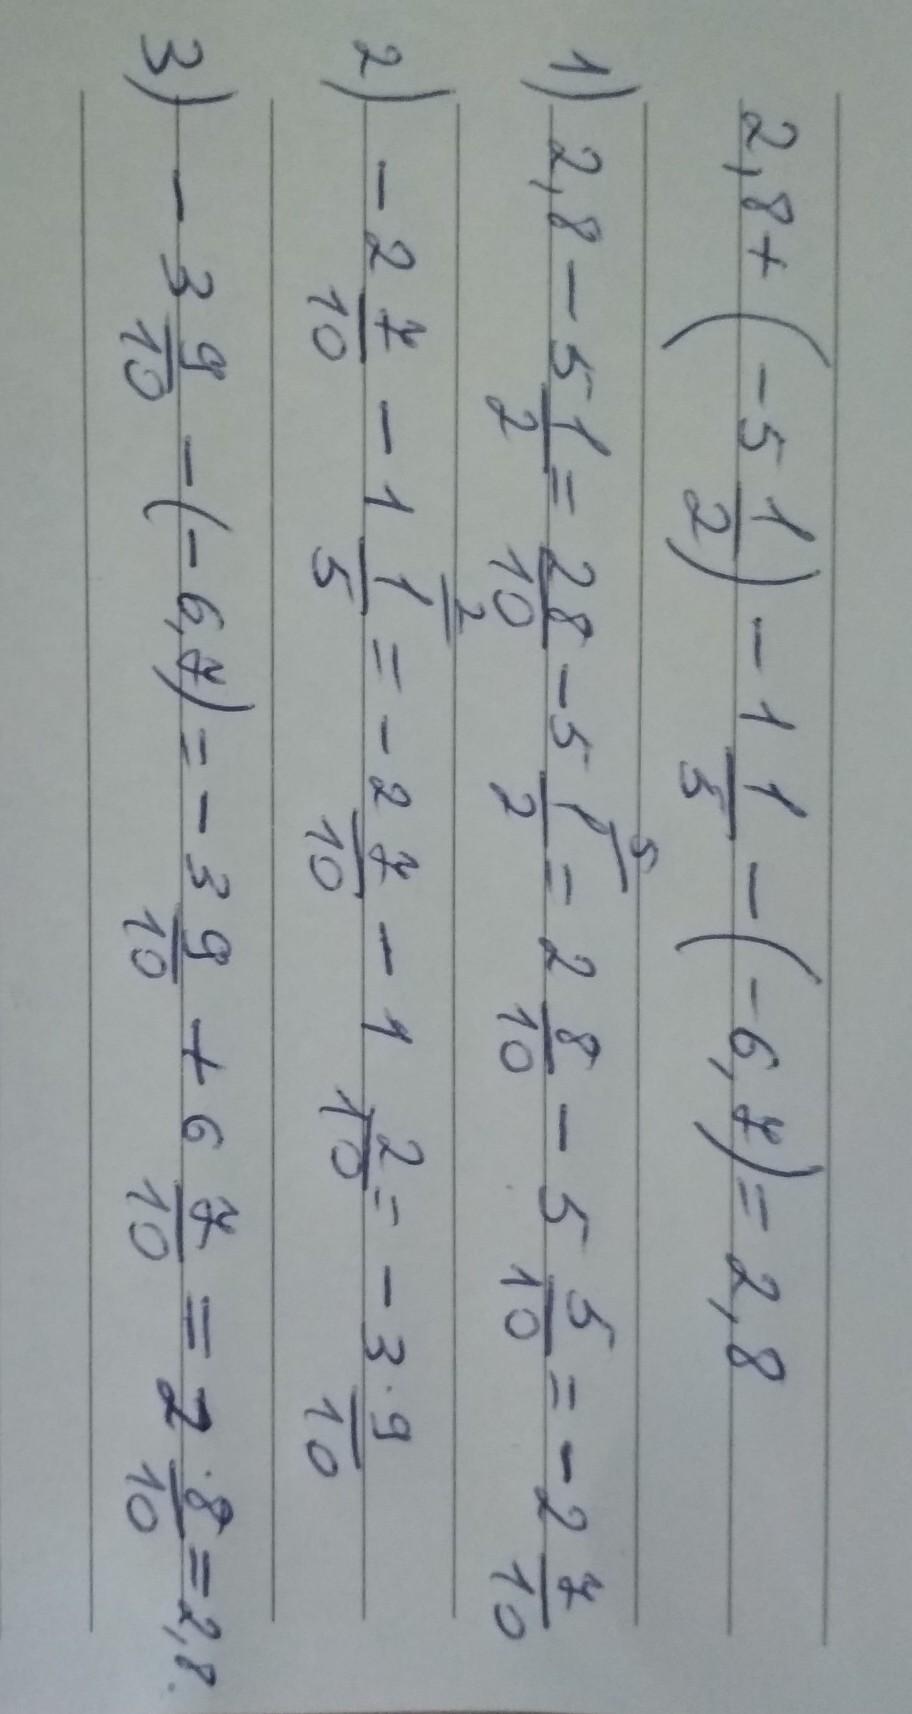 2,8+(-5 1/2)-1 1/5-(-6,7)=2,8
1) 2,8-5 1/2=28/10-5 1/2 5=2 8/10-5 5/10=-2 7/10
2) -2 7/10-1 1/5 2=-2 7/10-1 2/10=-3 9/10
3) -3 9/10-(-6,7)=-3 9/10+6 7/10=2 8/10=2,8.